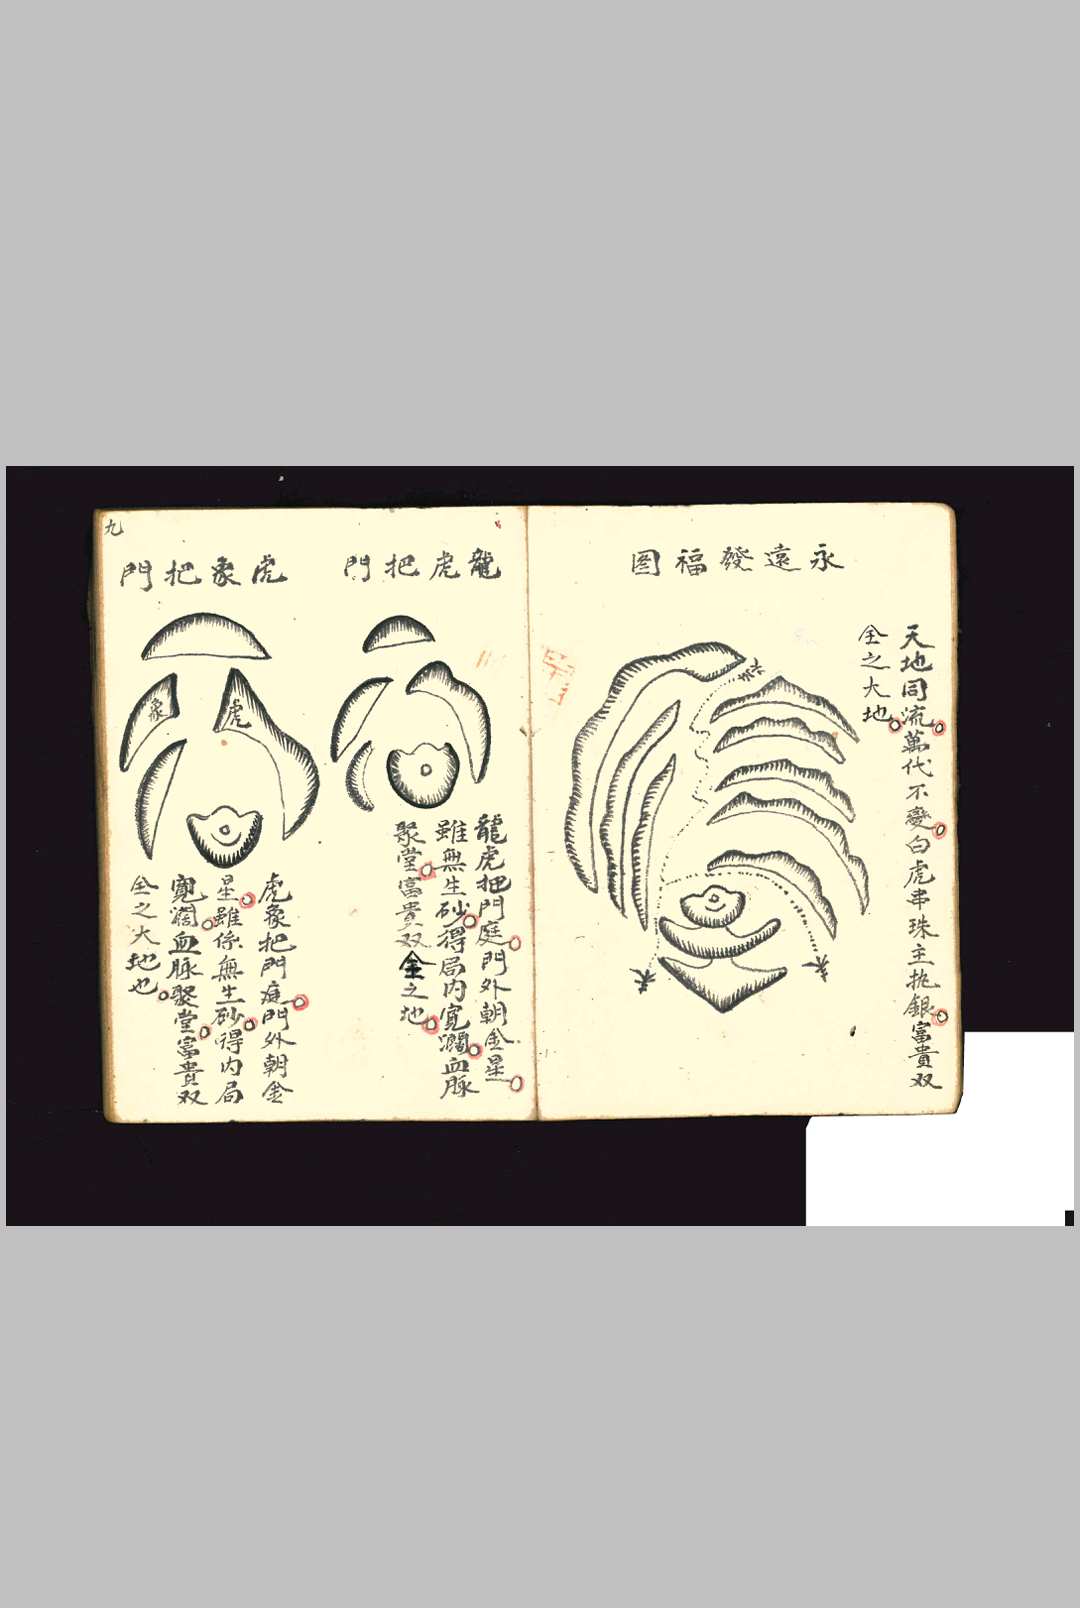 永遠發福图
天地同流萬代不變白虎串珠主執銀富貴双
全之大地
去
来
来
龍虎把門
龍虎把門庭門外朝金星
雖無生砂得局内寬濶血脉
聚堂富貴双全之地
虎象把門
象
虎
虎象把門庭門外朝金
星雖係無生砂得内局
寬濶血脉聚堂富貴双
全之大地也
九